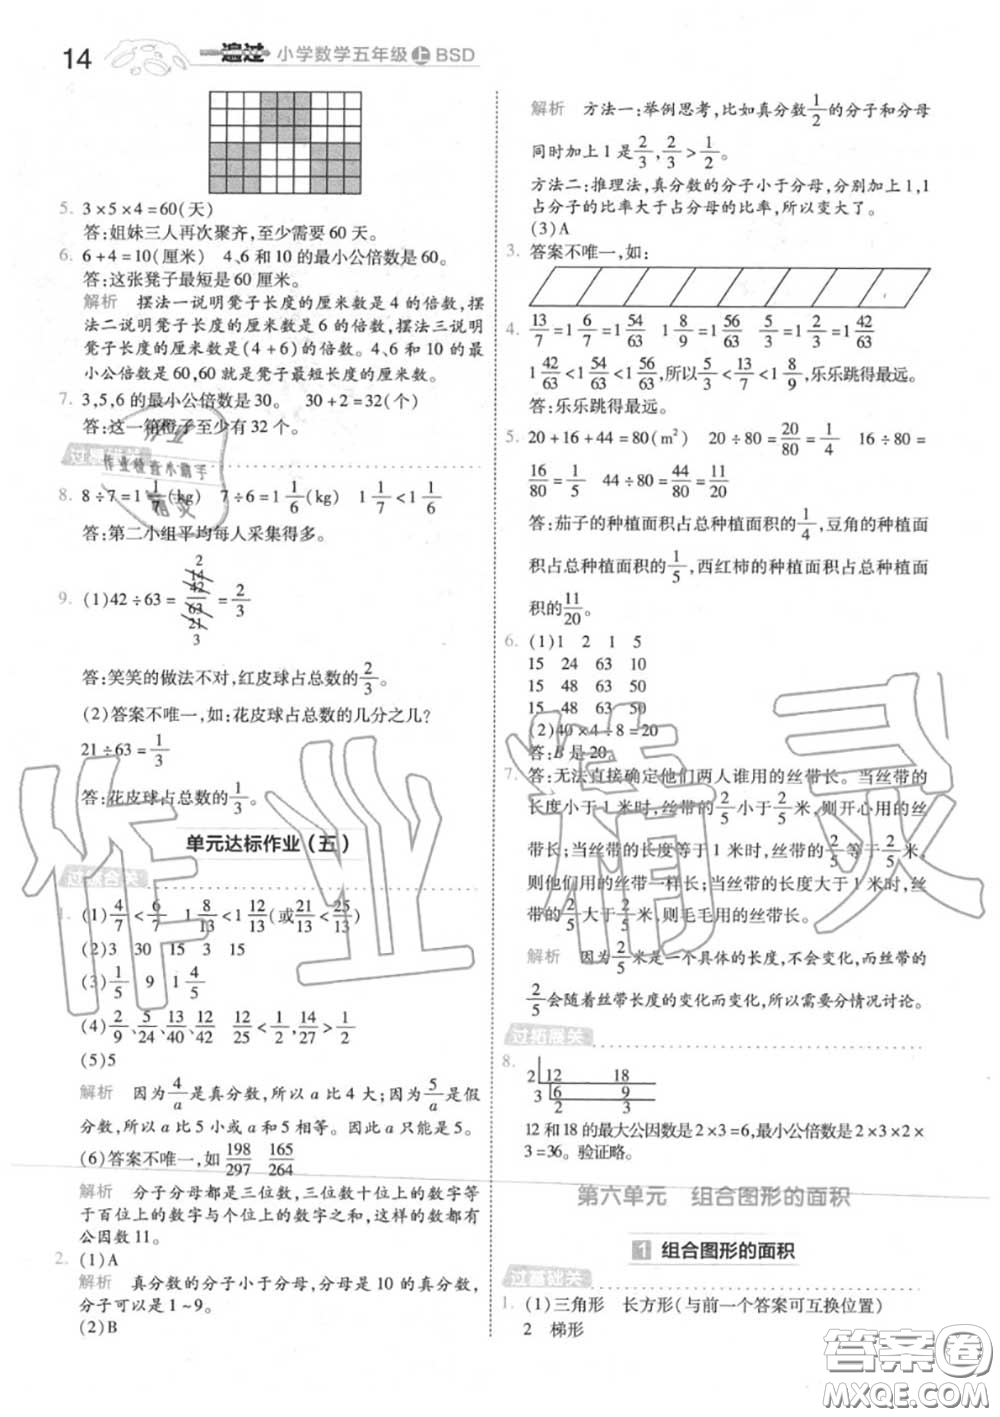 14 一遍过 小学数学五年级 上 BSD
5. 3×5×4=60(天)
答:姐妹三人再次聚齐,至少需要 60 天。
6. 6+4=10(厘米) 4、6 和 10 的最小公倍数是 60。
答:这张凳子最短是 60 厘米。
解析 摆法一说明凳子长度的厘米数是 4 的倍数,摆
法二说明凳子长度的厘米数是 6 的倍数,摆法三说明
凳子长度的厘米数是(4+6)的倍数。4、6 和 10 的最
小公倍数是 60,60 就是凳子最短长度的厘米数。
7. 3,5,6 的最小公倍数是 30。 30+2=32(个)
答:这一箱橙子至少有 32 个。
过基础关
8. 8÷7=1 1/7(kg) 7÷6=1 1/6(kg) 1 1/7<1 1/6
答:第二小组平均每人采集得多。
9. (1)42÷63= 2 14 42/63 21 3 = 2/3
答:笑笑的做法不对,红皮球占总数的 2/3。
(2)答案不唯一,如:花皮球占总数的几分之几?
21÷63= 1/3
答:花皮球占总数的 1/3。
单元达标作业(五)
过综合关
1. (1) 4/7 < 6/7 1 8/13 < 1 12/13 (或 21/13 < 25/13)
(2)3 30 15 3 15
(3) 1/5 9 1 4/5
(4) 2/9、5/24、13/40、12/42 12/25 < 1/2, 14/27 > 1/2
(5)5
解析 因为 4/a 是真分数,所以 a 比 4 大;因为 5/a 是假
分数,所以 a 比 5 小或 a 和 5 相等。因此 a 只能是 5。
(6)答案不唯一,如 198/297 165/264
解析 分子分母都是三位数,三位数十位上的数字等
于百位上的数字与个位上的数字之和,这样的数都有
公因数 11。
2. (1)A
解析 真分数的分子小于分母,分母是 10 的真分数,
分子可以是 1~9。
(2)B
解析 方法一:举例思考,比如真分数 1/2 的分子和分母
同时加上 1 是 2/3, 2/3 > 1/2。
方法二:推理法,真分数的分子小于分母,分别加上 1,1
占分子的比率大于占分母的比率,所以变大了。
(3)A
3. 答案不唯一,如:
4. 13/7=1 6/7=1 54/63 1 8/9=1 56/63 5/3=1 2/3=1 42/63
1 42/63<1 54/63<1 56/63,所以 5/3 < 13/7 < 1 8/9,乐乐跳得最远。
答:乐乐跳得最远。
5. 20+16+44=80(m²) 20÷80= 20/80 = 1/4 16÷80=
16/80 = 1/5 44÷80= 44/80 = 11/20
答:茄子的种植面积占总种植面积的 1/4,豆角的种植面
积占总种植面积的 1/5,西红柿的种植面积占总种植面
积的 11/20。
6. (1)1 2 1 5
15 24 63 10
15 48 63 50
15 48 63 50
(2)40×4÷8=20
答:B 是 20。
7. 答:无法直接确定他们两人谁用的丝带长。当丝带的
长度小于 1 米时,丝带的 2/5 小于 2/5 米,则开心用的丝
带长;当丝带的长度等于 1 米时,丝带的 2/5 等于 2/5 米,
则他们用的丝带一样长;当丝带的长度大于 1 米时,丝
带的 2/5 大于 2/5 米,则毛毛用的丝带长。
解析 因为 2/5 米是一个具体的长度,不会变化,而丝带的
2/5 会随着丝带长度的变化而变化,所以需要分情况讨论。
过拓展关
8. 2 12 18
3 6 9
2 3
12 和 18 的最大公因数是 2×3=6,最小公倍数是 2×3×2×
3=36。验证略。
第六单元 组合图形的面积
1 组合图形的面积
过基础关
1. (1)三角形 长方形(与前一个答案可互换位置)
2 梯形
作业精灵
作业
作业检查小助手
精灵
答案圈
MXQE.COM